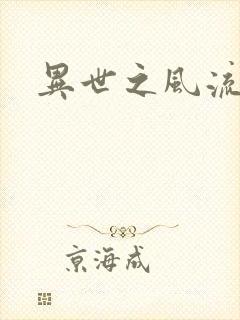 異世之風流
京海成